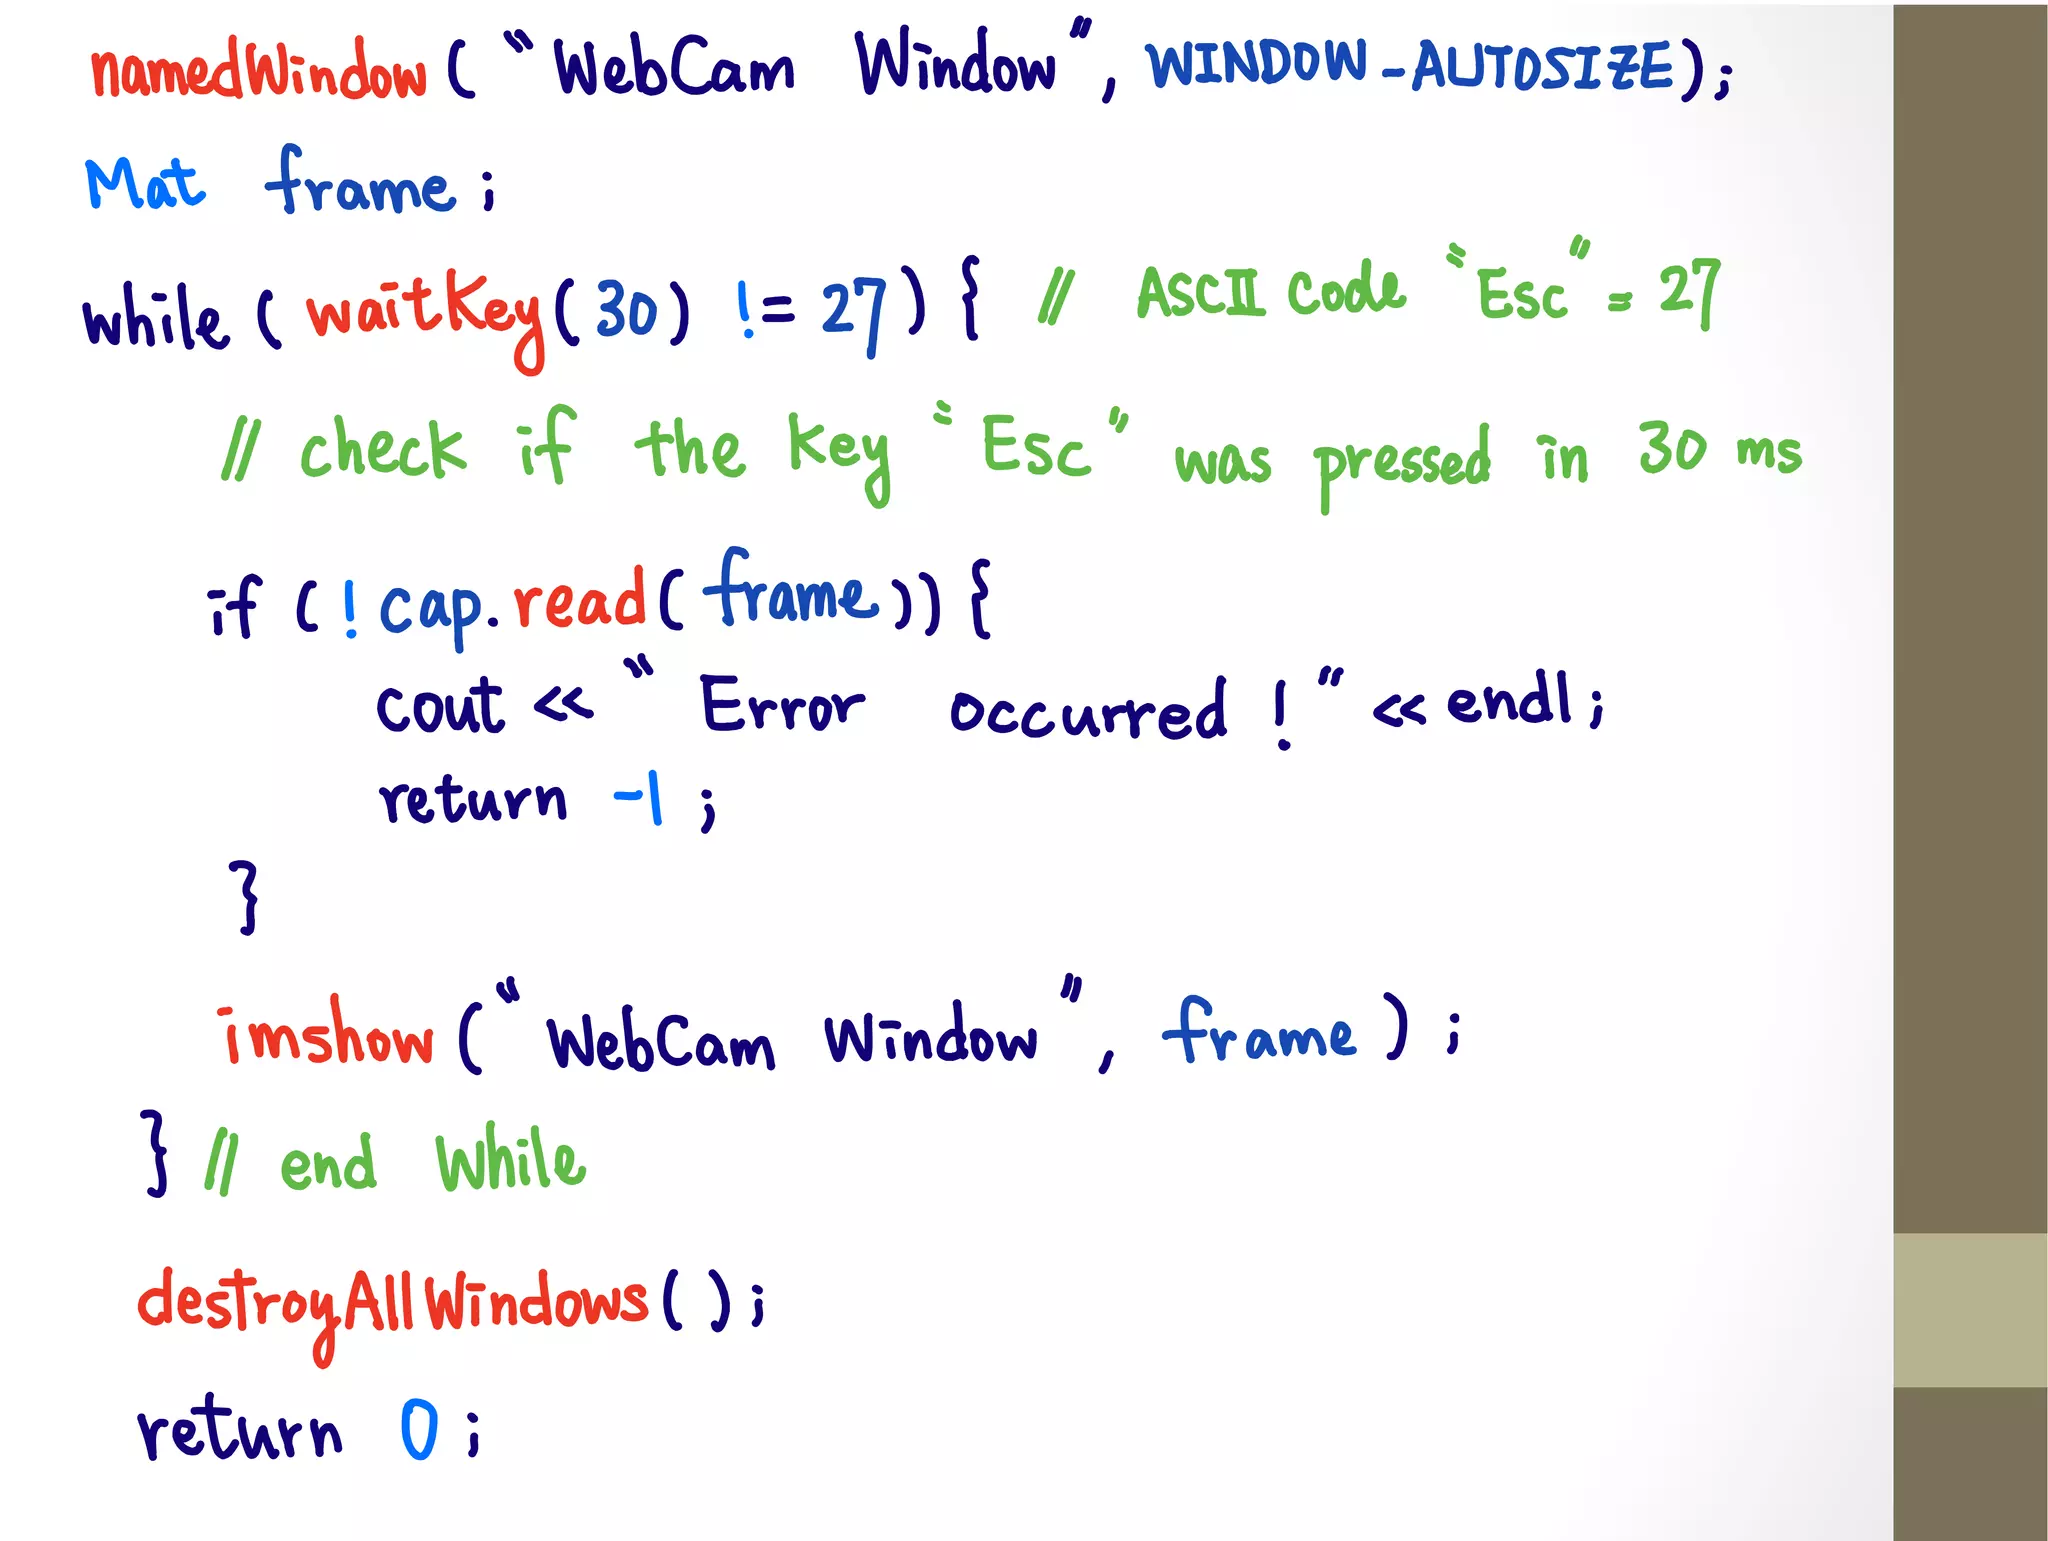 namedWindow("WebCam Window", WINDOW_AUTOSIZE);
Mat frame;
while (waitKey(30) != 27) { // ASCII Code "Esc" = 27
// check if the key "Esc" was pressed in 30 ms
if (!cap.read(frame)) {
cout << "Error occurred!" << endl;
return -1;
}
imshow("WebCam Window", frame);
} // end While
destroyAllWindows();
return 0;